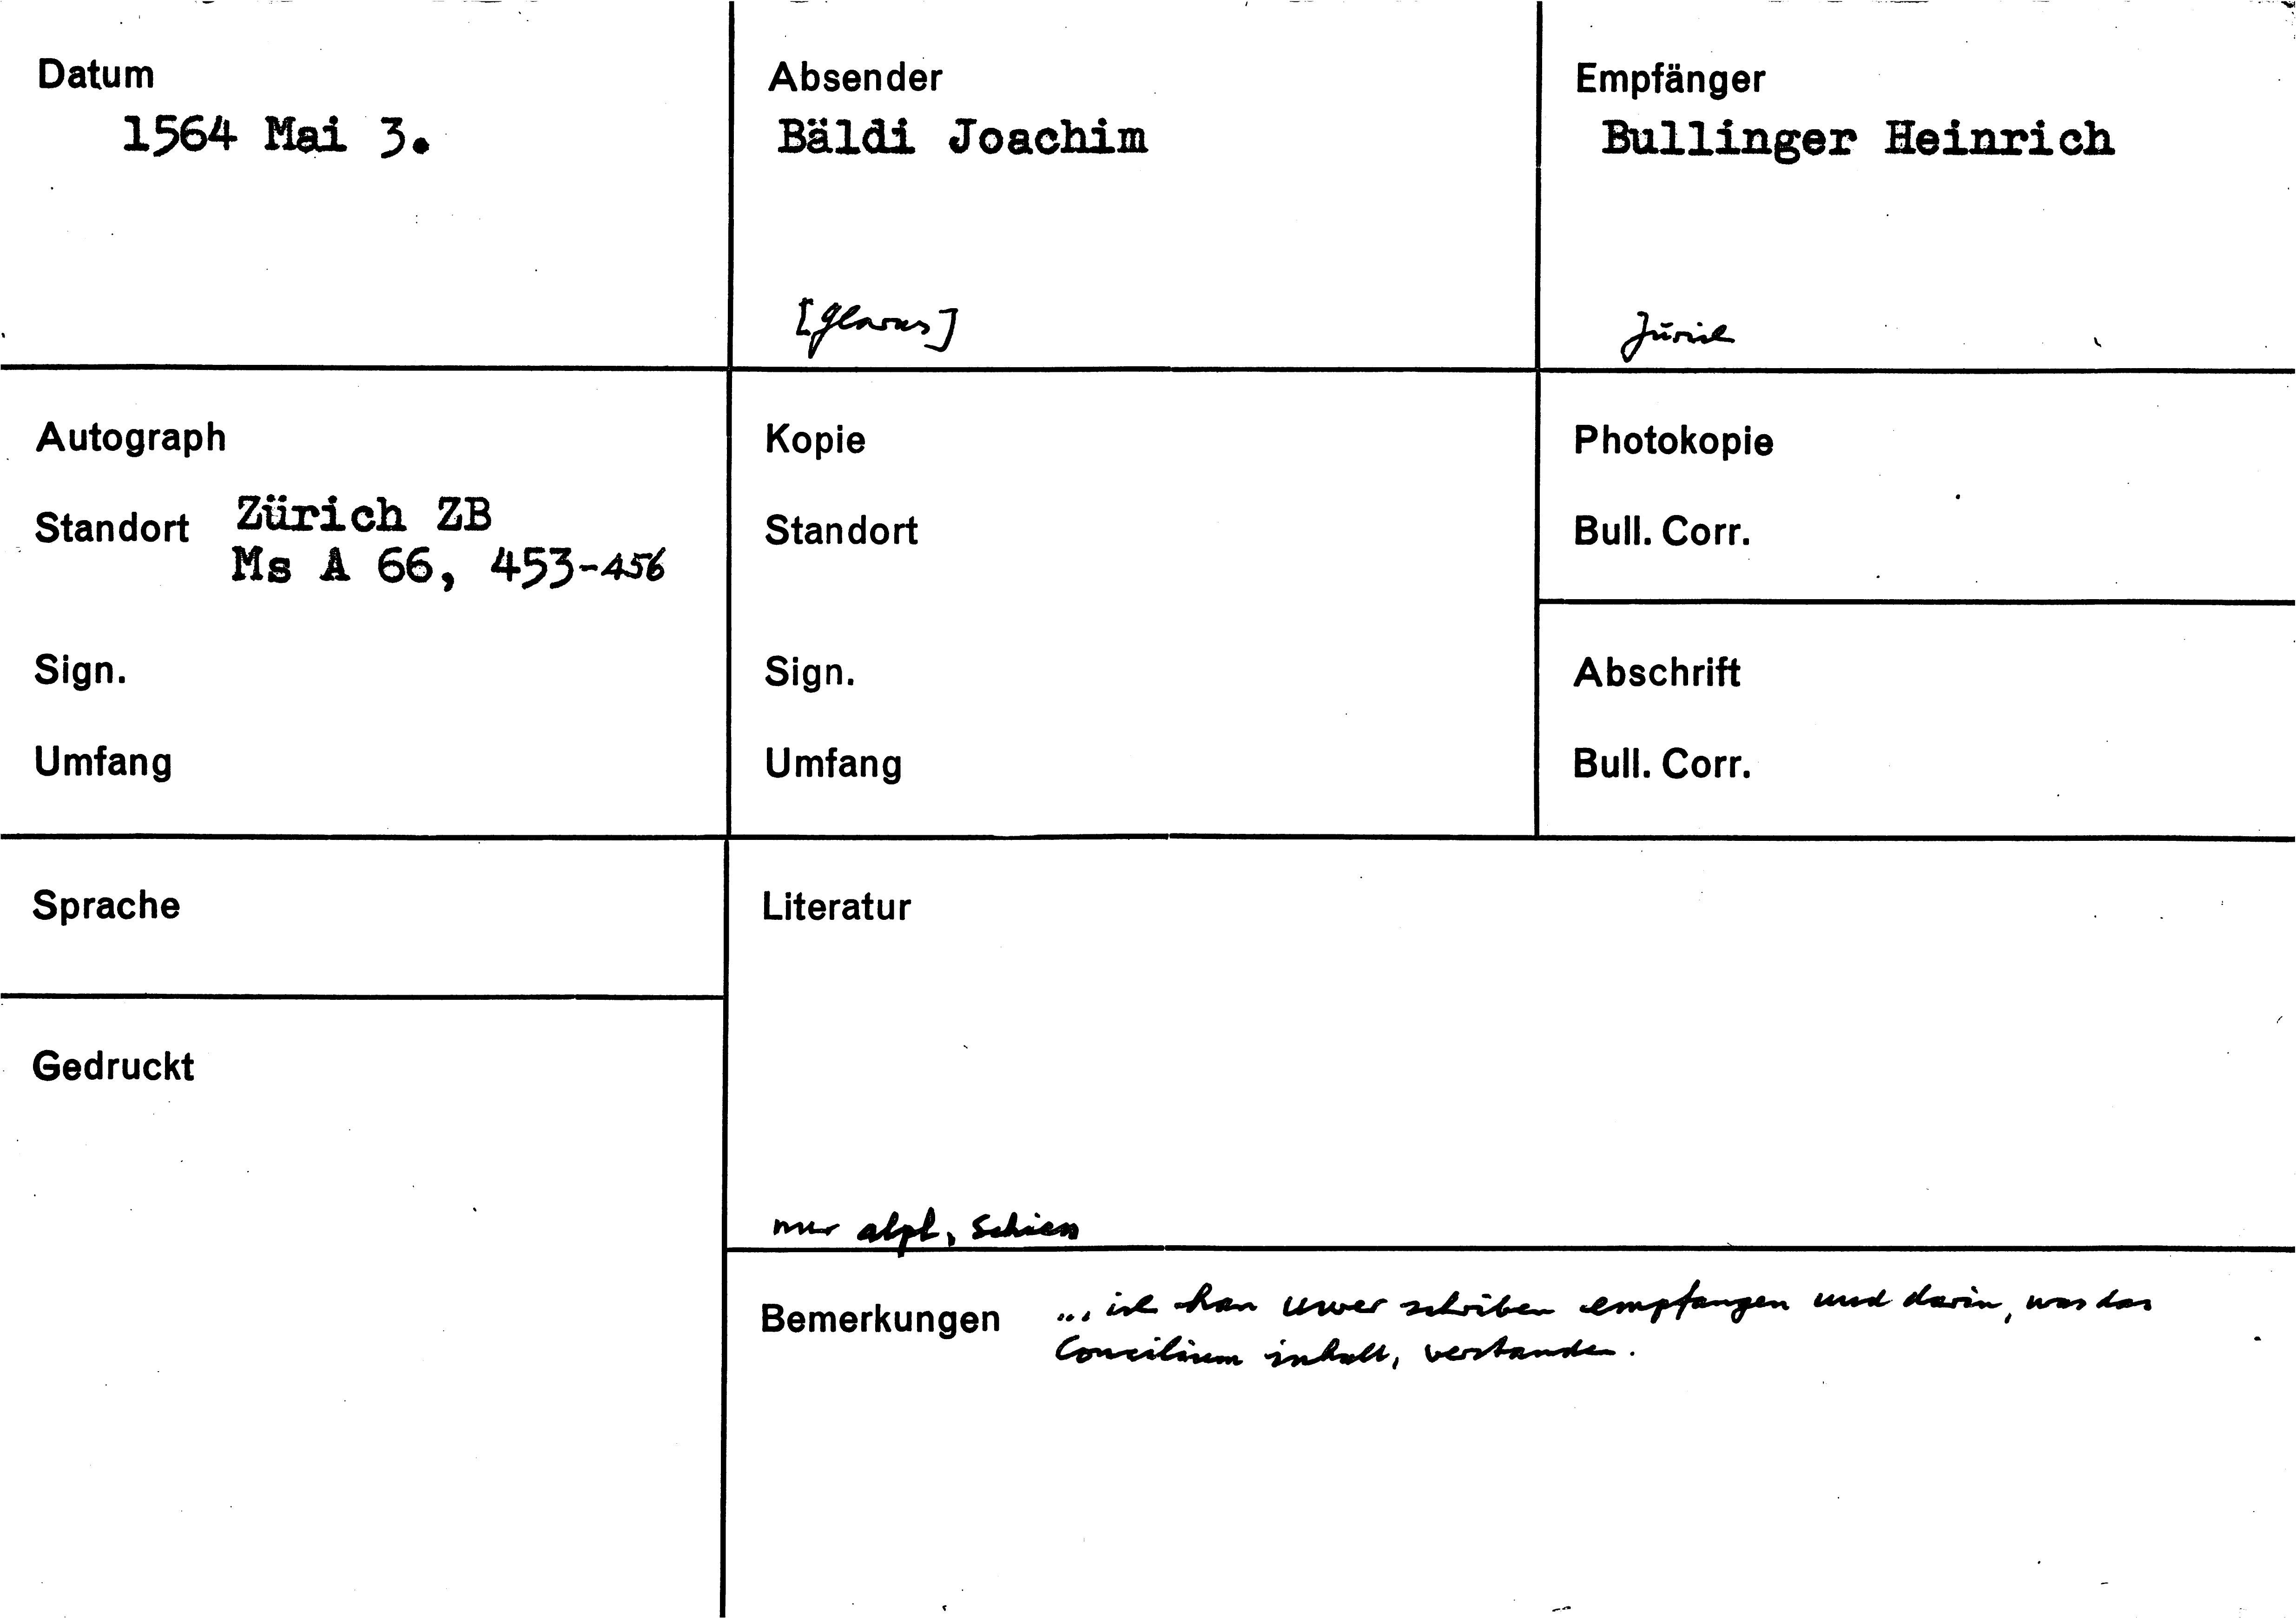 Datum
1564 Mai 3.
Absender
Bäldi Joachim
[Glarus]
Empfänger
Bullinger Heinrich
Zürich
Autograph
Standort Zürich ZB
Ms A 66, 453-456
Sign.
Umfang
Kopie
Standort
Sign.
Umfang
Photokopie
Bull. Corr.
Abschrift
Bull. Corr.
Sprache
Gedruckt
Literatur
nur alph. Schien
Bemerkungen ... ich han uwer schriben empfangen und darin, was das
Concilium inhalt, verstanden.